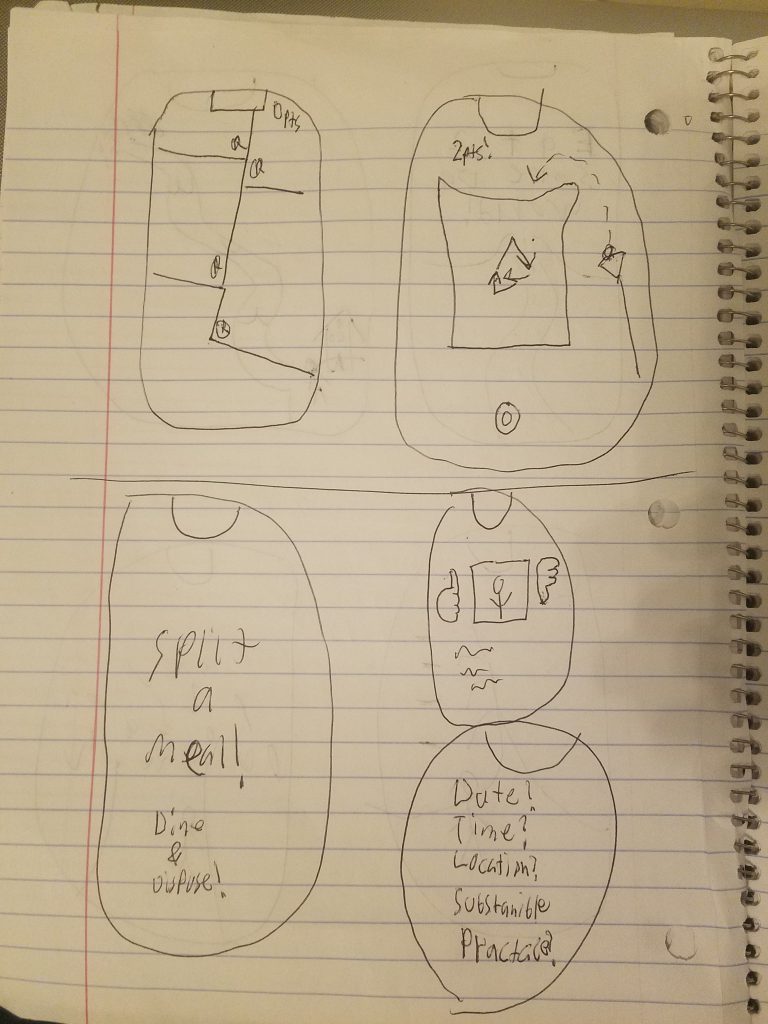 0pts
R
R
R
R
2pts!
Split
a
Meal!
Dine
&
Date?
Time?
Location?
Substanible
Practice?